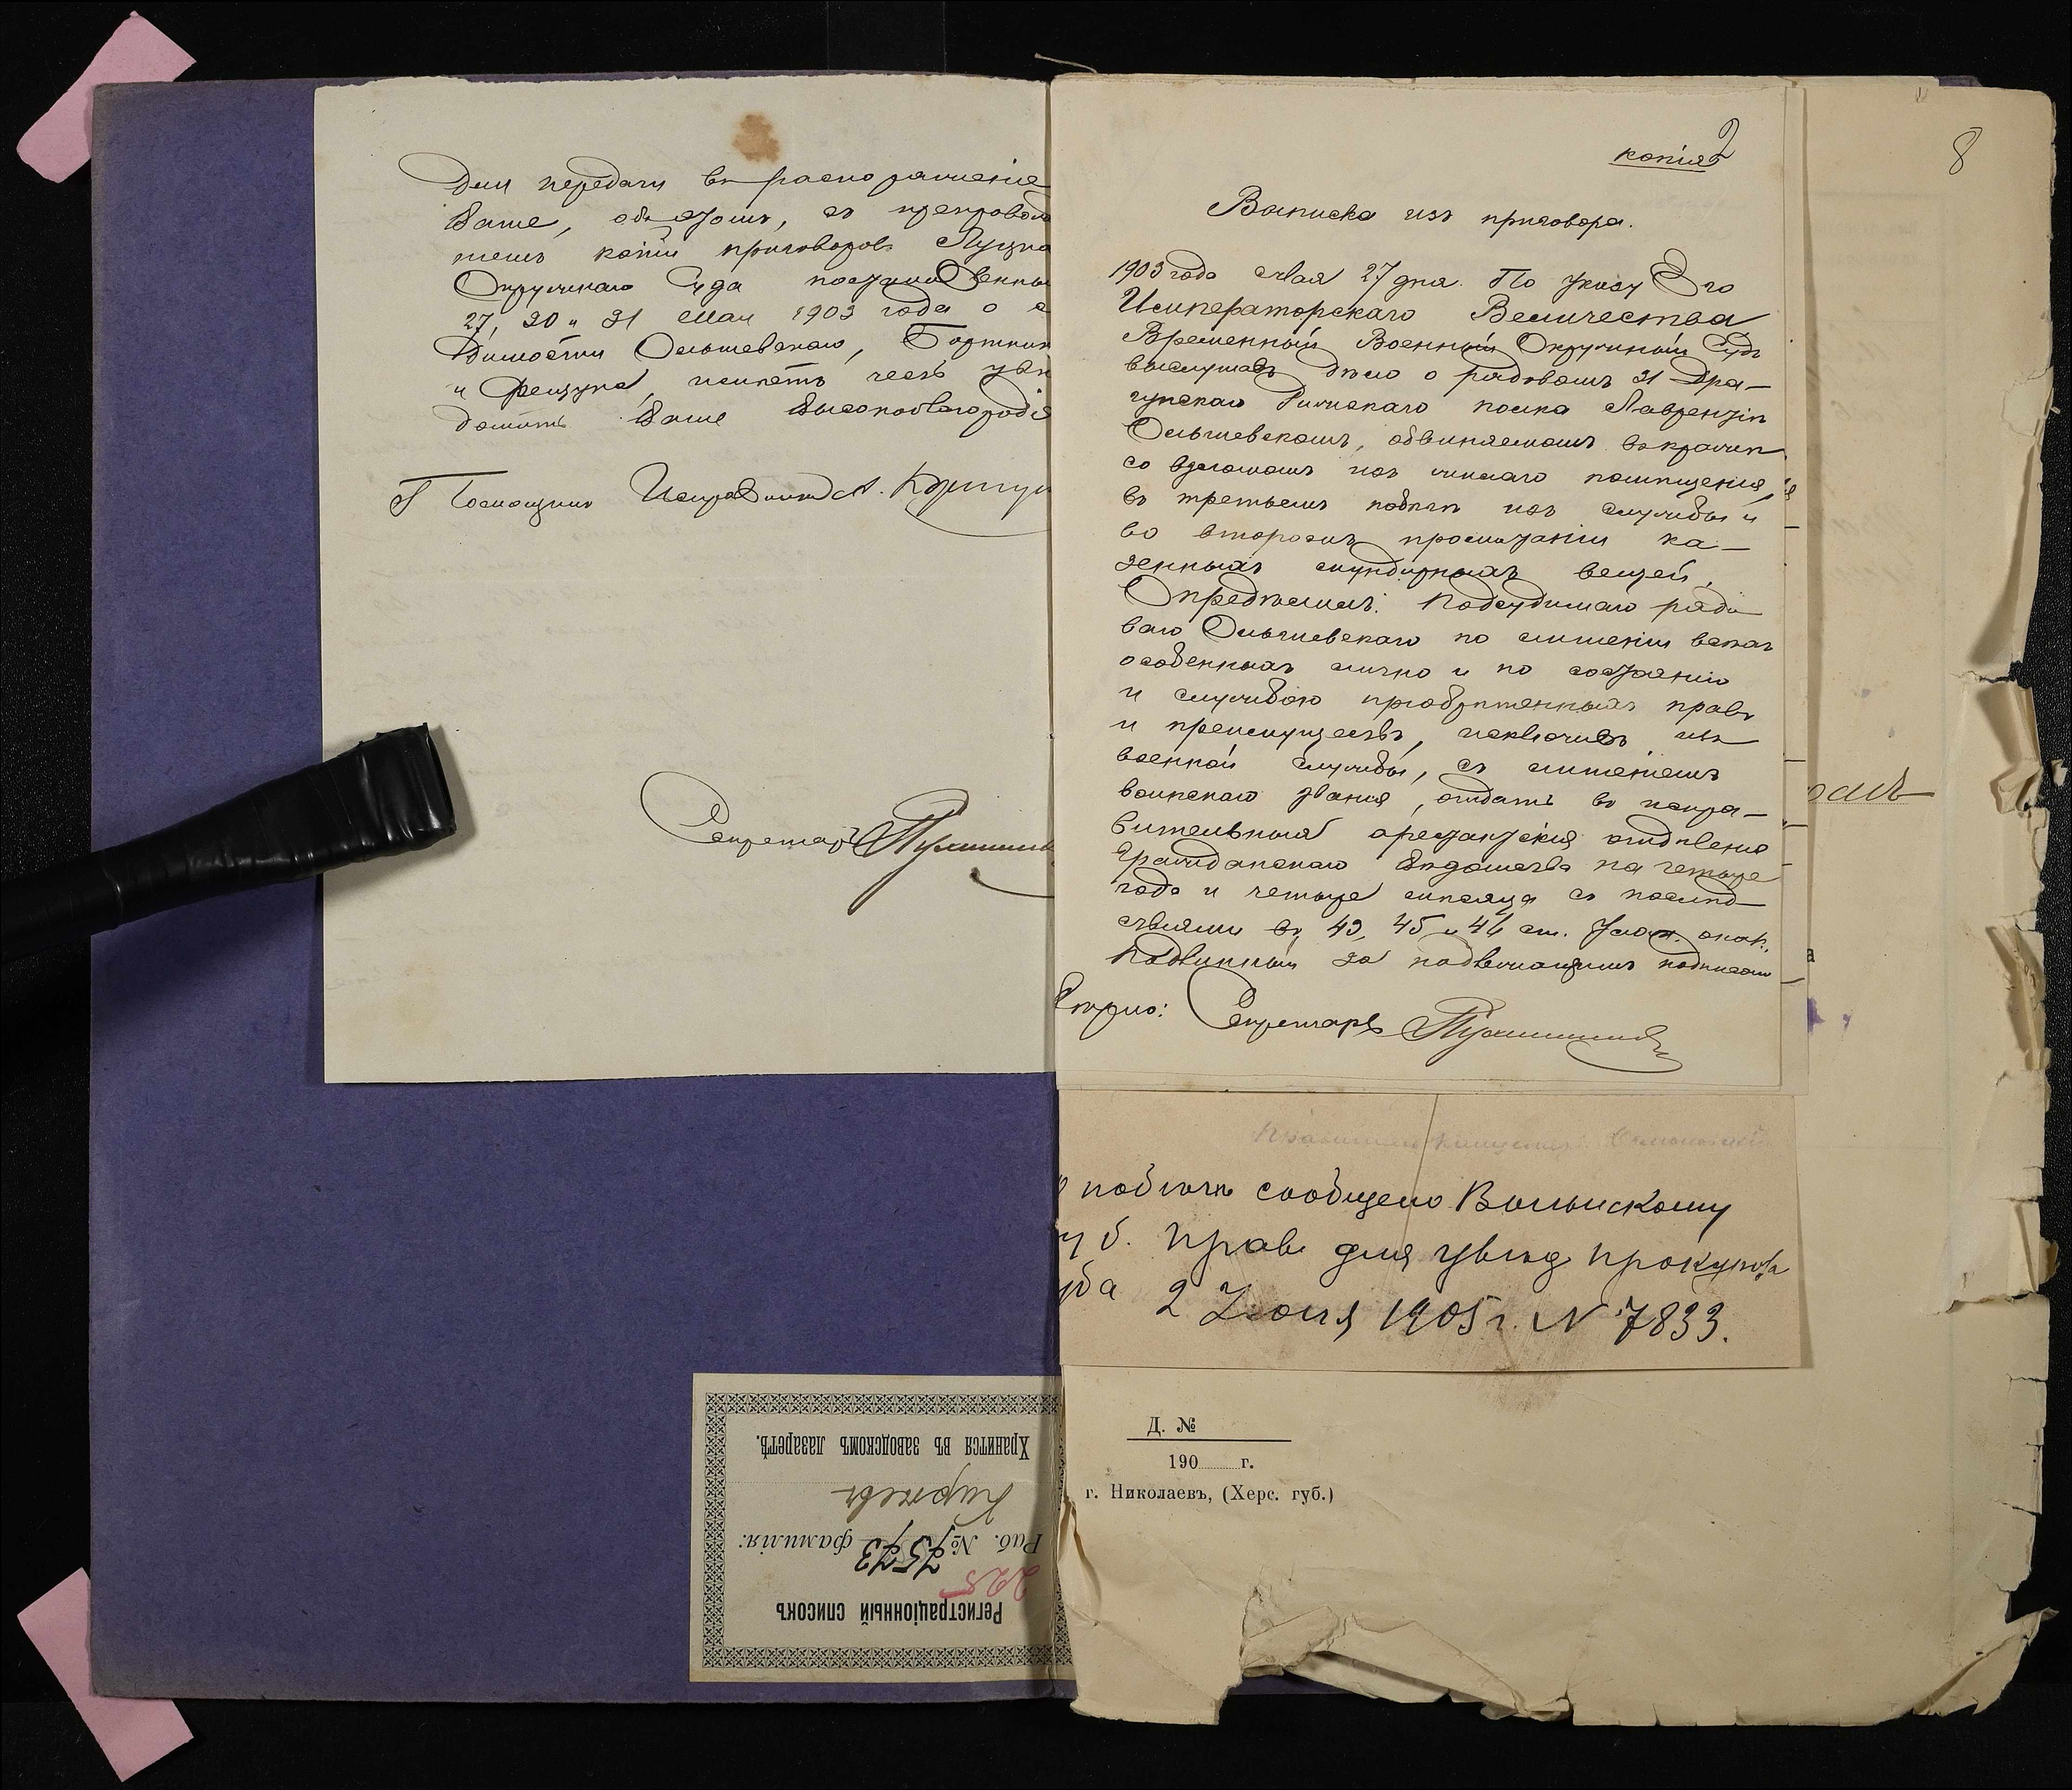 Для передачи въ распоряженіе
Ваше, объ этомъ, съ препровож
темъ копіи приговоровъ Луцка
Окружнаго Суда
27, 30 и 31 Мая 1903 года о
димости Ольшевскаго,
и имѣетъ честь увѣ
домить Ваше Высокоблагородіе
Помощникъ Исправника
Секретарь
копія
8
Выписка изъ приговора.
1903 года Мая 27 дня. По указу Его
Императорскаго Величества
Временный Военный Окружный Судъ
выслушавъ дѣло о рядовомъ 31 Дра-
гунскаго Рижскаго полка Лаврентіи
Ольшевскомъ, обвиняемомъ въ кражѣ
со взломомъ изъ жилаго помѣщенія,
въ третьемъ побѣгѣ изъ службы и
во второмъ промотаніи ка-
зенныхъ мундирныхъ вещей.
Опредѣлилъ: Подсудимаго рядо
ваго Ольшевскаго по лишеніи всѣхъ
особенныхъ лично и по состоянію
и службою пріобрѣтенныхъ правъ
и преимуществъ, исключивъ изъ
военной службы, съ лишеніемъ
воинскаго званія, отдать въ испра-
вительныя арестантскія отдѣленія
Гражданскаго Вѣдомства на четыре
года и четыре мѣсяца съ послѣд-
ствіями въ 43, 45 и 46 ст. Улож. о нак.
Подлинный за надлежащимъ подписомъ
Вѣрно: Секретарь
о побѣгѣ сообщено Волынскому
Губ. Правл для увѣд прокурора
2 Іюня 1905 г. N 7833.
Д. №
190 г.
г. Николаевъ, (Херс. губ.)
Регистраціонный списокъ
225
Раб. № 7573 фамилія:
Хранится въ заводскомъ лазаретѣ.